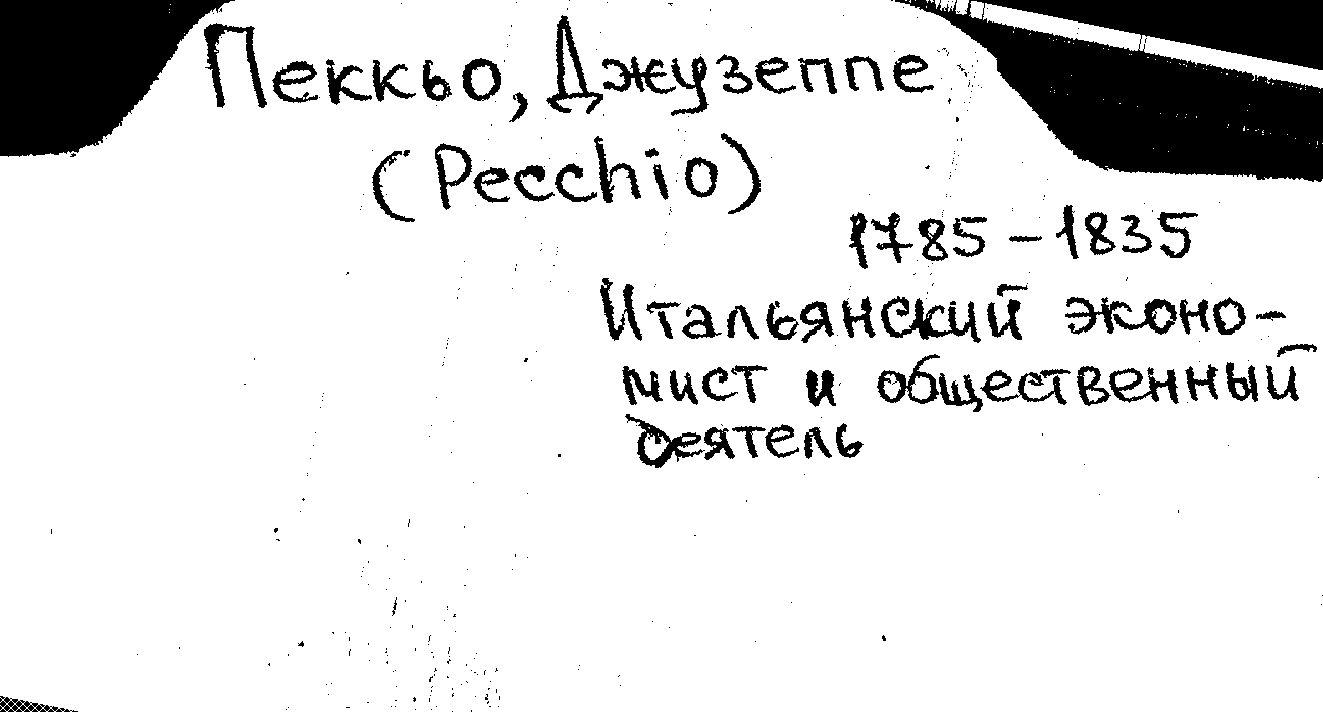 Пеккьо, Джузеппе
(Pecchio)
1785 – 1835
Итальянский эконо-
мист и общественный
деятель